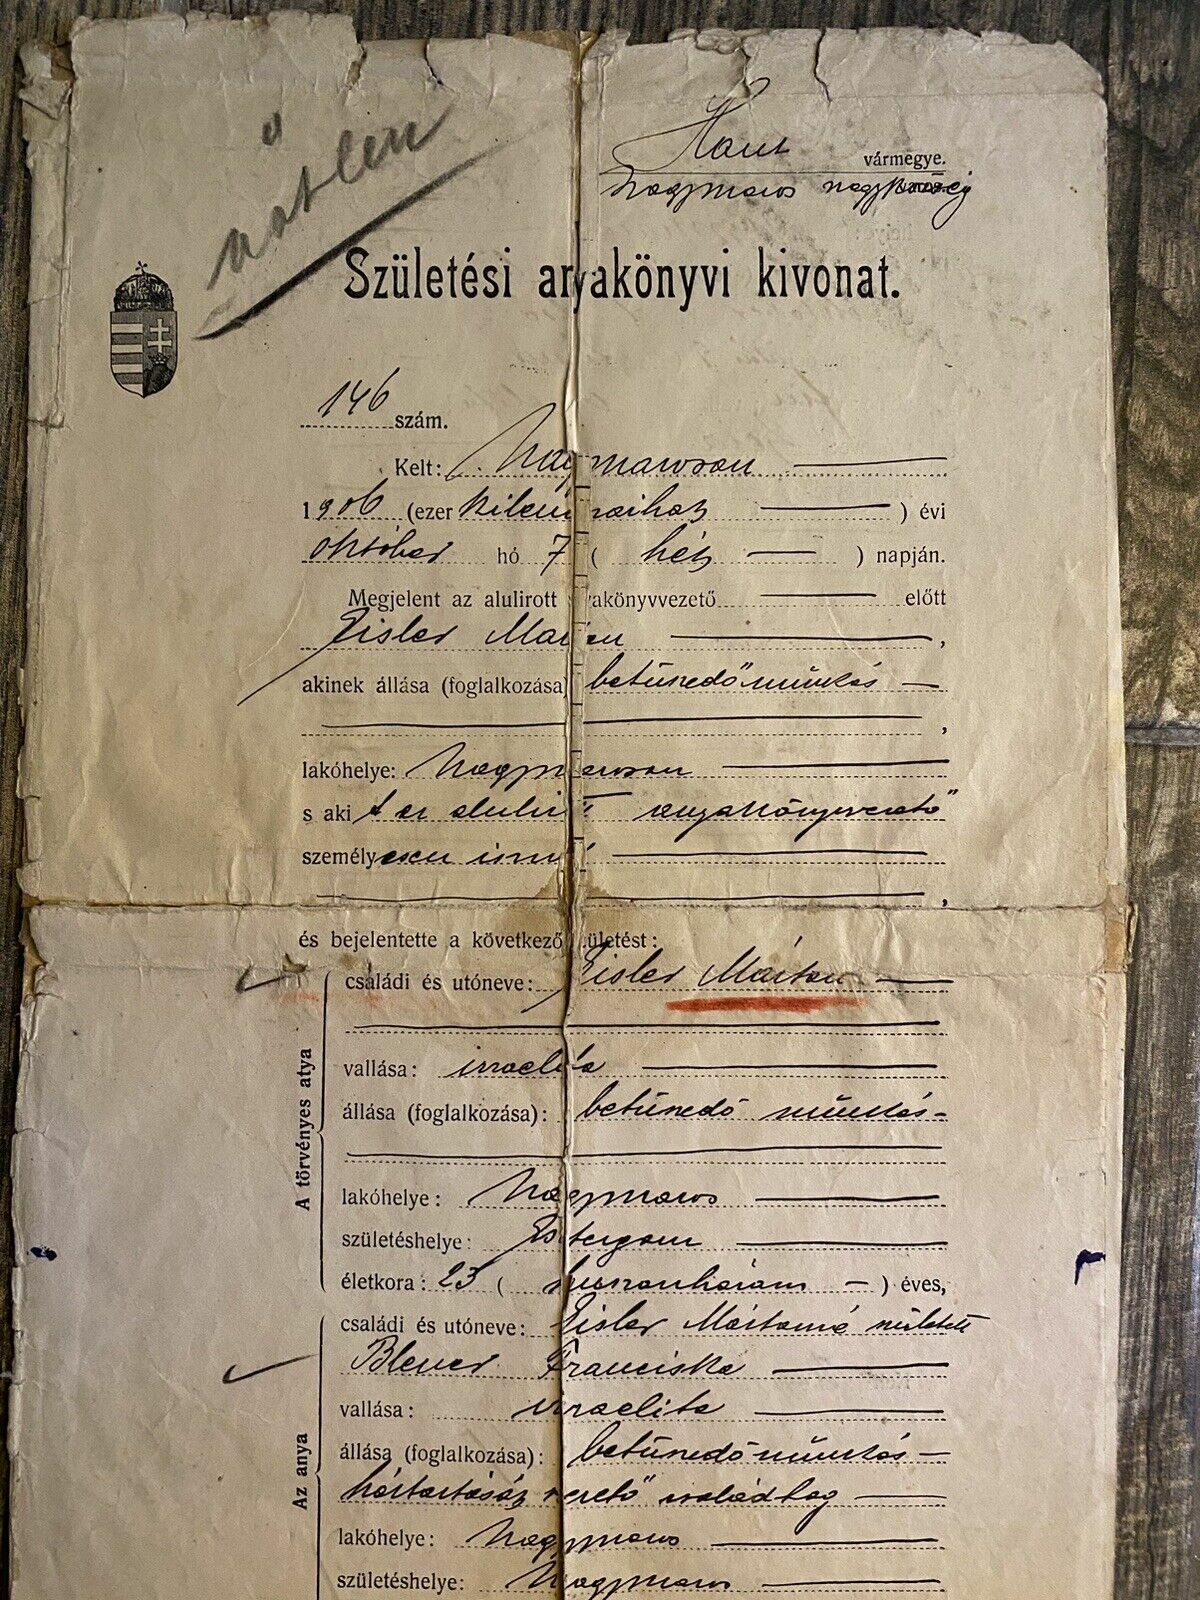 nőtlen
Hont vármegye.
Nagymaros nagyközség
Születési anyakönyvi kivonat.
146 szám.
Kelt: Nagymaroson
1906 (ezer kilencszázhat) évi
október hó 7 ( hét ) napján.
Megjelent az alulirott anyakönyvvezető előtt
Eisler Márton ,
akinek állása (foglalkozása) betüszedő munkás
,
lakóhelye: Nagymaroson
s aki t az alulirott anyakönyvvezető
személyesen ismer
,
és bejelentette a következő születést:
A törvényes atya
családi és utóneve: Eisler Márton
vallása: izraelita
állása (foglalkozása): betüszedő munkás
lakóhelye: Nagymaros
születéshelye: Esztergom
életkora: 23 ( huszonhárom ) éves,
Az anya
családi és utóneve: Eisler Mártonné született
Franciska
vallása: izraelita
állása (foglalkozása): betüszedő munkás
háztartását vezető családtag
lakóhelye: Nagymaros
születéshelye: Nagymaros